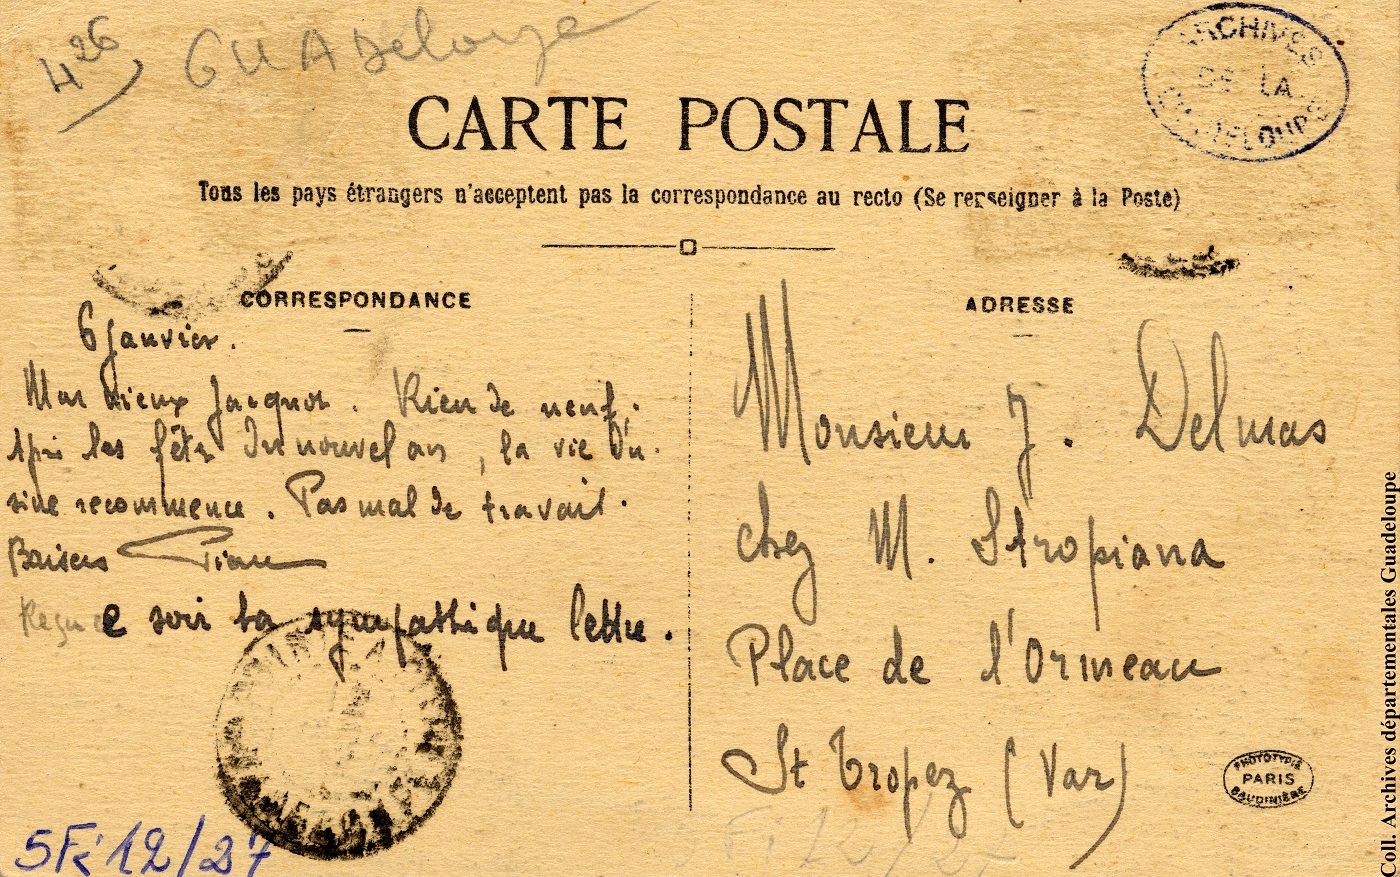 4 26
GUADeloupe
ARCHIVES
DE LA
GUADELOUPE
CARTE POSTALE
Tous les pays étrangers n'acceptent pas la correspondance au recto (Se renseigner à la Poste)
CORRESPONDANCE
6 Janvier.
Mon vieux Jacquot. Rien de neuf.
Après les fêtes du nouvel an, la vie d'u-
sine recommence. Pas mal de travail.
Baisers
Reçu ce soir ta sympathique lettre.
5Fi 12/27
ADRESSE
Monsieur J. Delmas
chez M. Stropiana
Place de l'Ormeau
St Tropez (Var)
PHOTOTYPIE
PARIS
BAUDINIÈRE
Coll. Archives départementales Guadeloupe